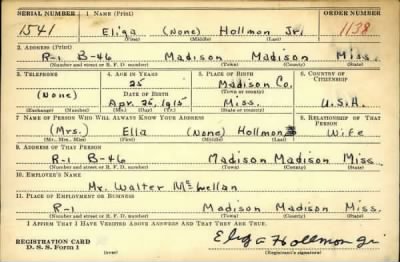 SERIAL NUMBER 1. NAME (Print) ORDER NUMBER
1541 Eliga (None) Hollmon Jr. 1138
(First) (Middle) (Last)
2. ADDRESS (Print)
R-1 B-46 Madison Madison Miss.
(Number and street or R. F. D. number) (Town) (County) (State)
3. TELEPHONE 4. AGE IN YEARS 5. PLACE OF BIRTH 6. COUNTRY OF CITIZENSHIP
25 Madison Co.
(None) DATE OF BIRTH (Town or county)
Apr. 25, 1915 Miss. U.S.A.
(Exchange) (Number) (Mo.) (Day) (Yr.) (State or country)
7. NAME OF PERSON WHO WILL ALWAYS KNOW YOUR ADDRESS 8. RELATIONSHIP OF THAT PERSON
(Mrs.) Ella (None) Hollmon Wife
(Mr., Mrs., Miss) (First) (Middle) (Last)
9. ADDRESS OF THAT PERSON
R-1 B-46 Madison Madison Miss.
(Number and street or R. F. D. number) (Town) (County) (State)
10. EMPLOYER'S NAME
Mr. Walter
11. PLACE OF EMPLOYMENT OR BUSINESS
R-1 Madison Madison Miss.
(Number and street or R. F. D. number) (Town) (County) (State)
I AFFIRM THAT I HAVE VERIFIED ABOVE ANSWERS AND THAT THEY ARE TRUE.
REGISTRATION CARD
D. S. S. Form 1 (over) Eliga Hollmon Jr
(Registrant's signature)